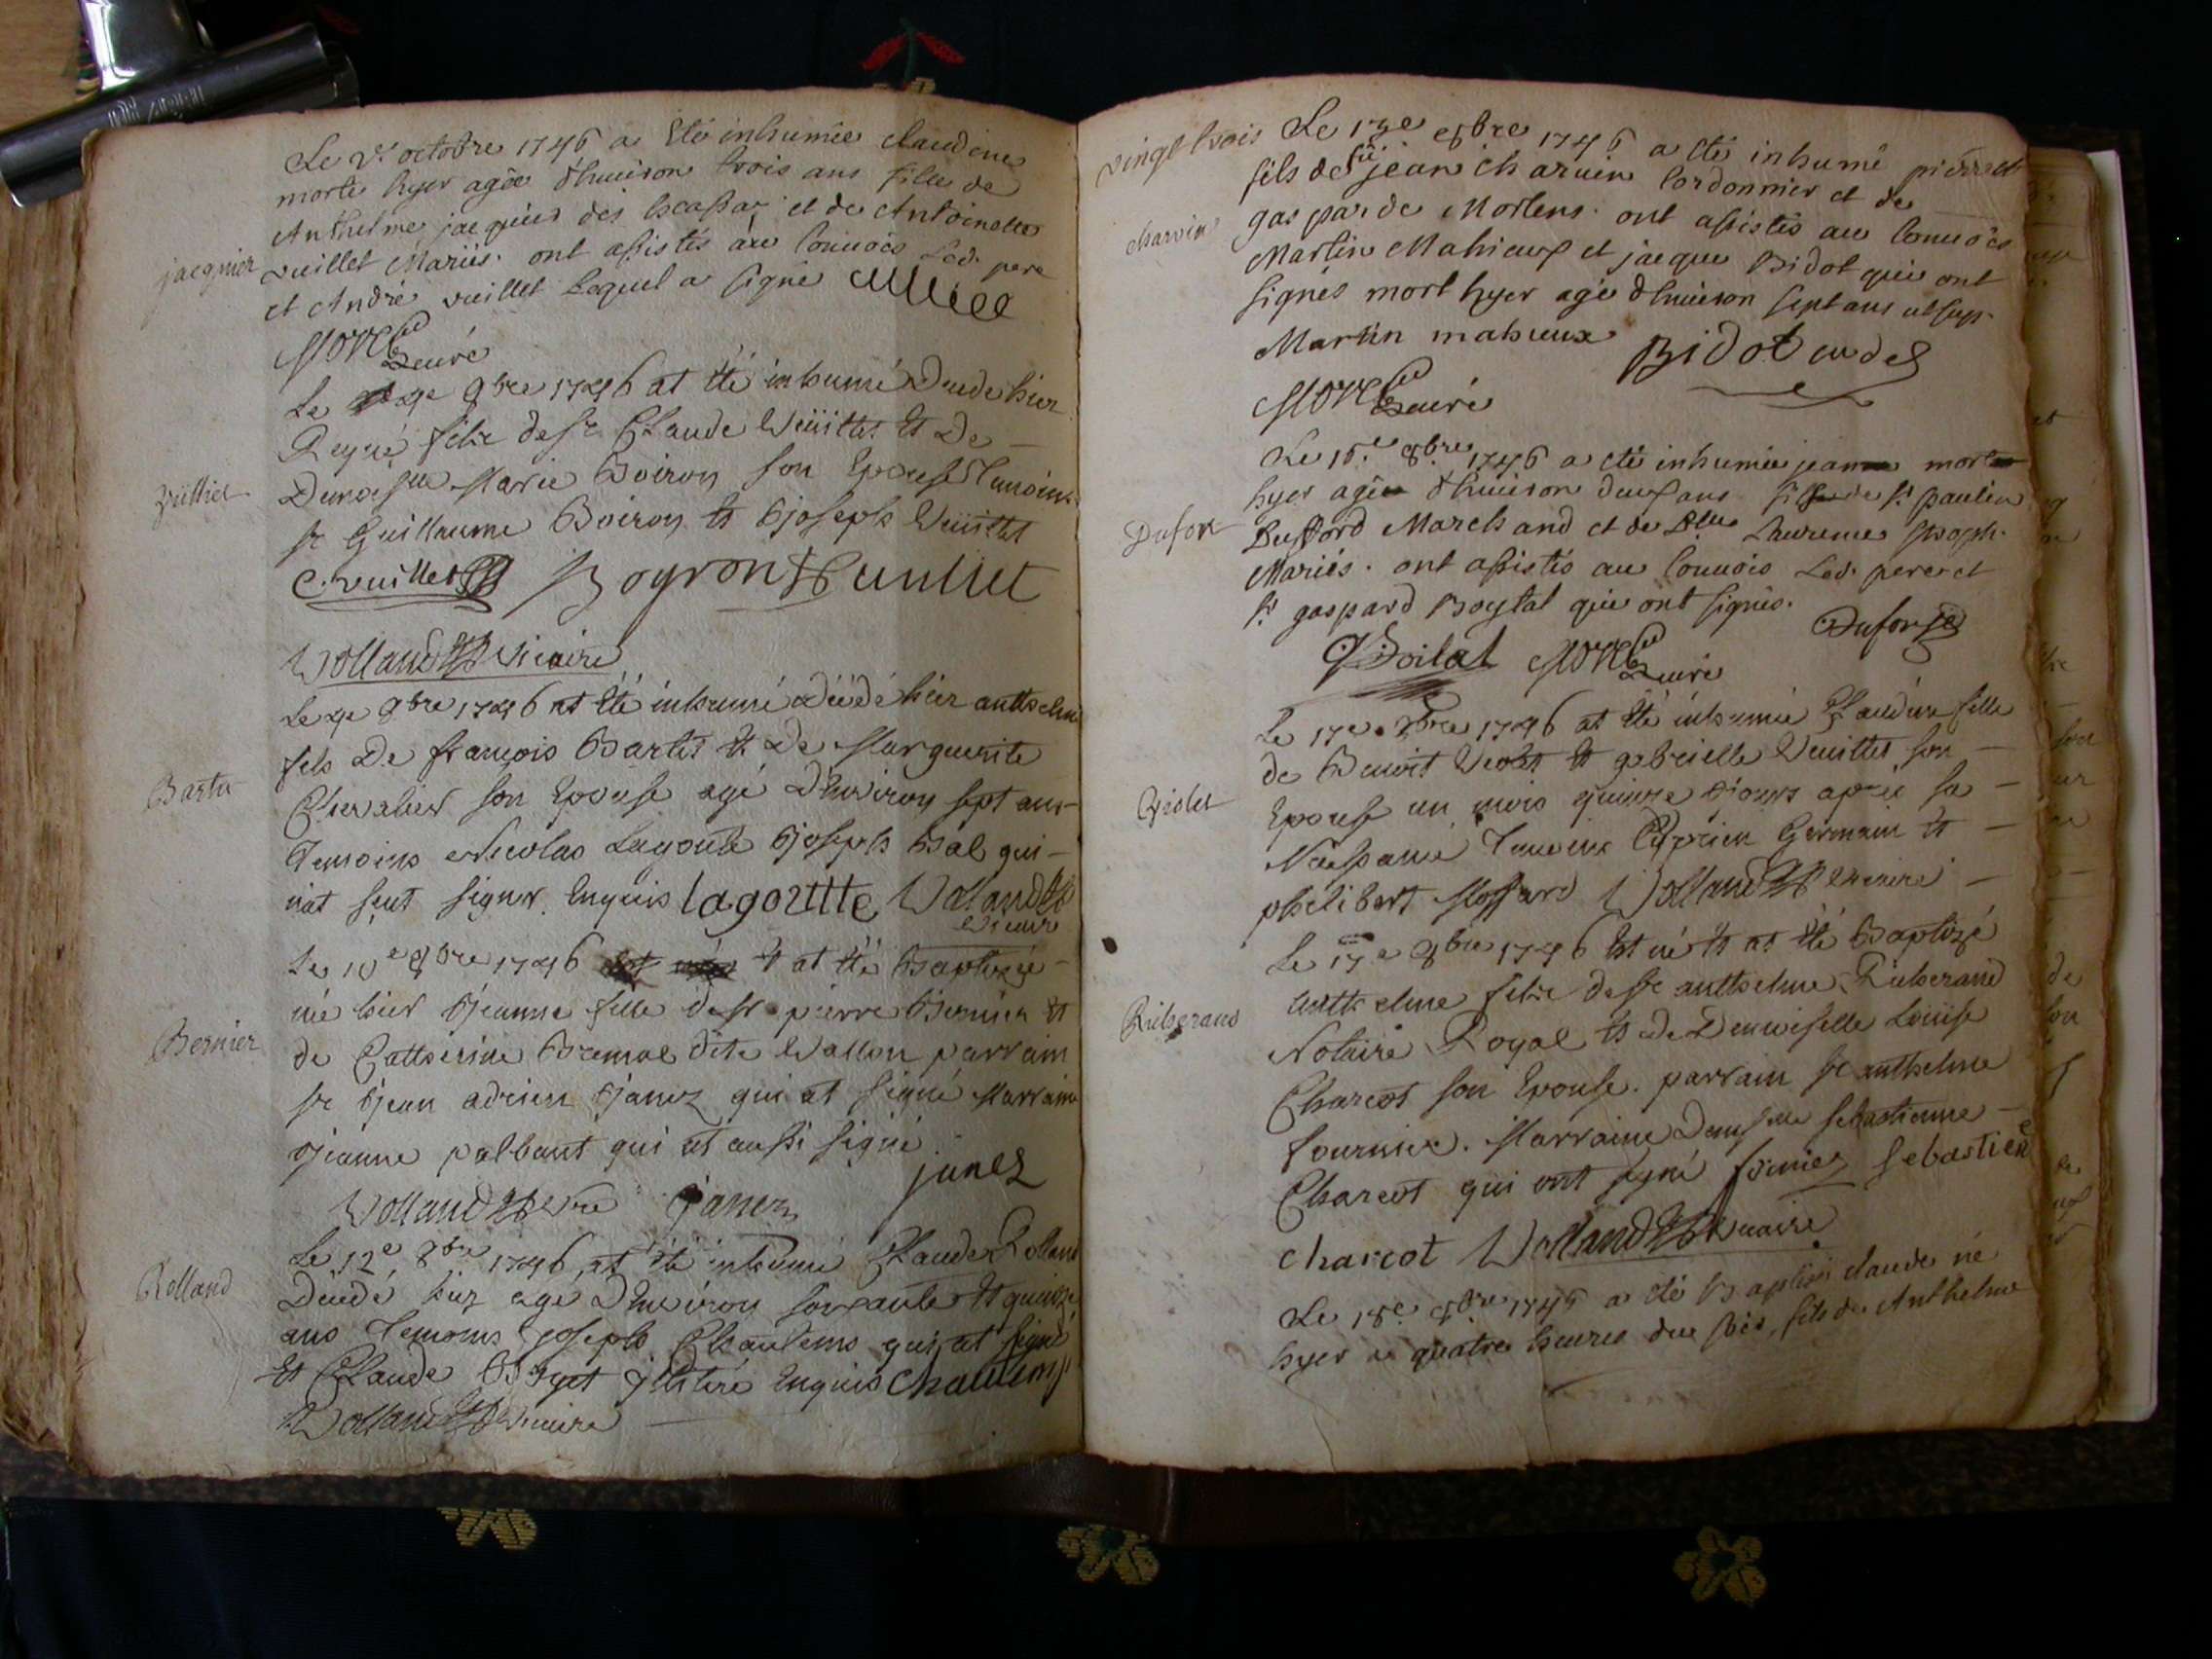 Le octobre 1746 a été inhumée claudine
morte hyer agée d'huiron trois ans fille de
Anthelme jacquier des et de Antoinette
jacquier
vuillet Mariés. ont assistés au Conuois Led. pere
et André vuillet Lequel a signé
Morel curé
Le 9bre 1746 at été inhumé hier
fils de sr Claude Vuillet et De
vuilliet
Demoislle Marie Boiron son Epouse Temoins
sr Guillaume Boiron et Joseph Vuillet
C. vuillet Boyron Vuilliet
Volland vicaire
Le 9bre 1746 at été inhumé hier antthelme
fils De françois Bartet et De Marguerite
Chevalier son Epouse agé D'environ sept ans
Temoins Nicolas Lagoutte Joseph Bal qui
nat sçut signer Enquis lagoutte Volland
vicaire
Le 10e 8bre 1746 et at été Baptizée
née hier Jeanne fille de sr pierre Bernier et
Bernier
de Cattherine dite Wallon parrain
sr Jean adrien Janez qui at signé Marraine
Jeanne palbant qui at aussi signé
Volland vre Janez janez
Le 12e 8bre 1746 at été inhumé Claude Rolland
Rolland
Décédé hier agé D'environ soixante et quinze
ans Temoins Joseph Chaulems qui at signé
Et Claude illiteré Enquis chaulems
Volland vicaire
vingt trois
Le 13e 8bre 1746 a été inhumé pierre
fils de sr jean charuin Cordonnier et de
charvin
gasparde Mortens. ont assistés au Conuois
Martin Mahieux et jacque Bidot qui ont
signés mort hyer agé d'huiron sept ans ut sup.
Martin mahieux Bidot cadet
Morel curé
Le 15.e 8bre 1746 a eté inhumée jean mort
hyer agé d'huiron deux ans fils de sr paulin
Dufort
Dufford Marchand et de Dlle Laurence
Mariés. ont assistés au Conuois Led. pere et
sr gaspard Boytat qui ont signés.
Boilat Morel curé Dufort
Le 17e. 8bre 1746 at été inhumée Claudine fille
de Benoit Violet et gabrielle Vuillet son
Violet
Epouse un mois quinze Jours après sa
Naissance Temoins Germain et
philibert Mossard Volland vicaire
Le 17e 8bre 1746 Est né et at été Baptizé
antthelme fils de sr antthelme Ruberand
Notaire Royal et de Demoiselle Louise
Charcot son Epouse. parrain sr anthelme
fournier. Marraine Demslle sebastienne
Charcot qui ont signé fournier sebastiene
charcot Volland vicaire
Le 18e. 8bre 1746 a été Baptisé claude né
hyer a quatre heures du soir, fils de Anthelme